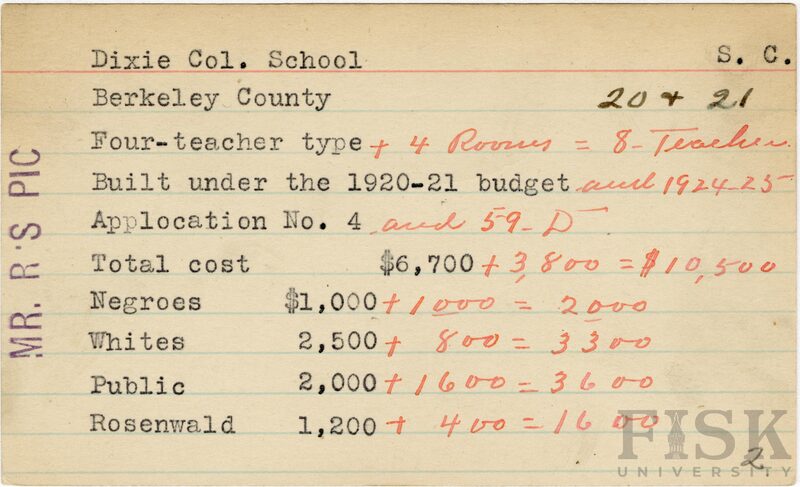 Dixie Col. School S. C.
Berkeley County 20 + 21
Four-teacher type + 4 Rooms = 8-Teacher
Built under the 1920-21 budget and 1924-25
Applocation No. 4 and 59-D
Total cost $6,700 + 3,800 = $10,500
Negroes $1,000 + 1000 = 2000
Whites 2,500 + 800 = 3300
Public 2,000 + 1600 = 3600
Rosenwald 1,200 + 400 = 1600
2
MR. R'S PIC
FISK
UNIVERSITY